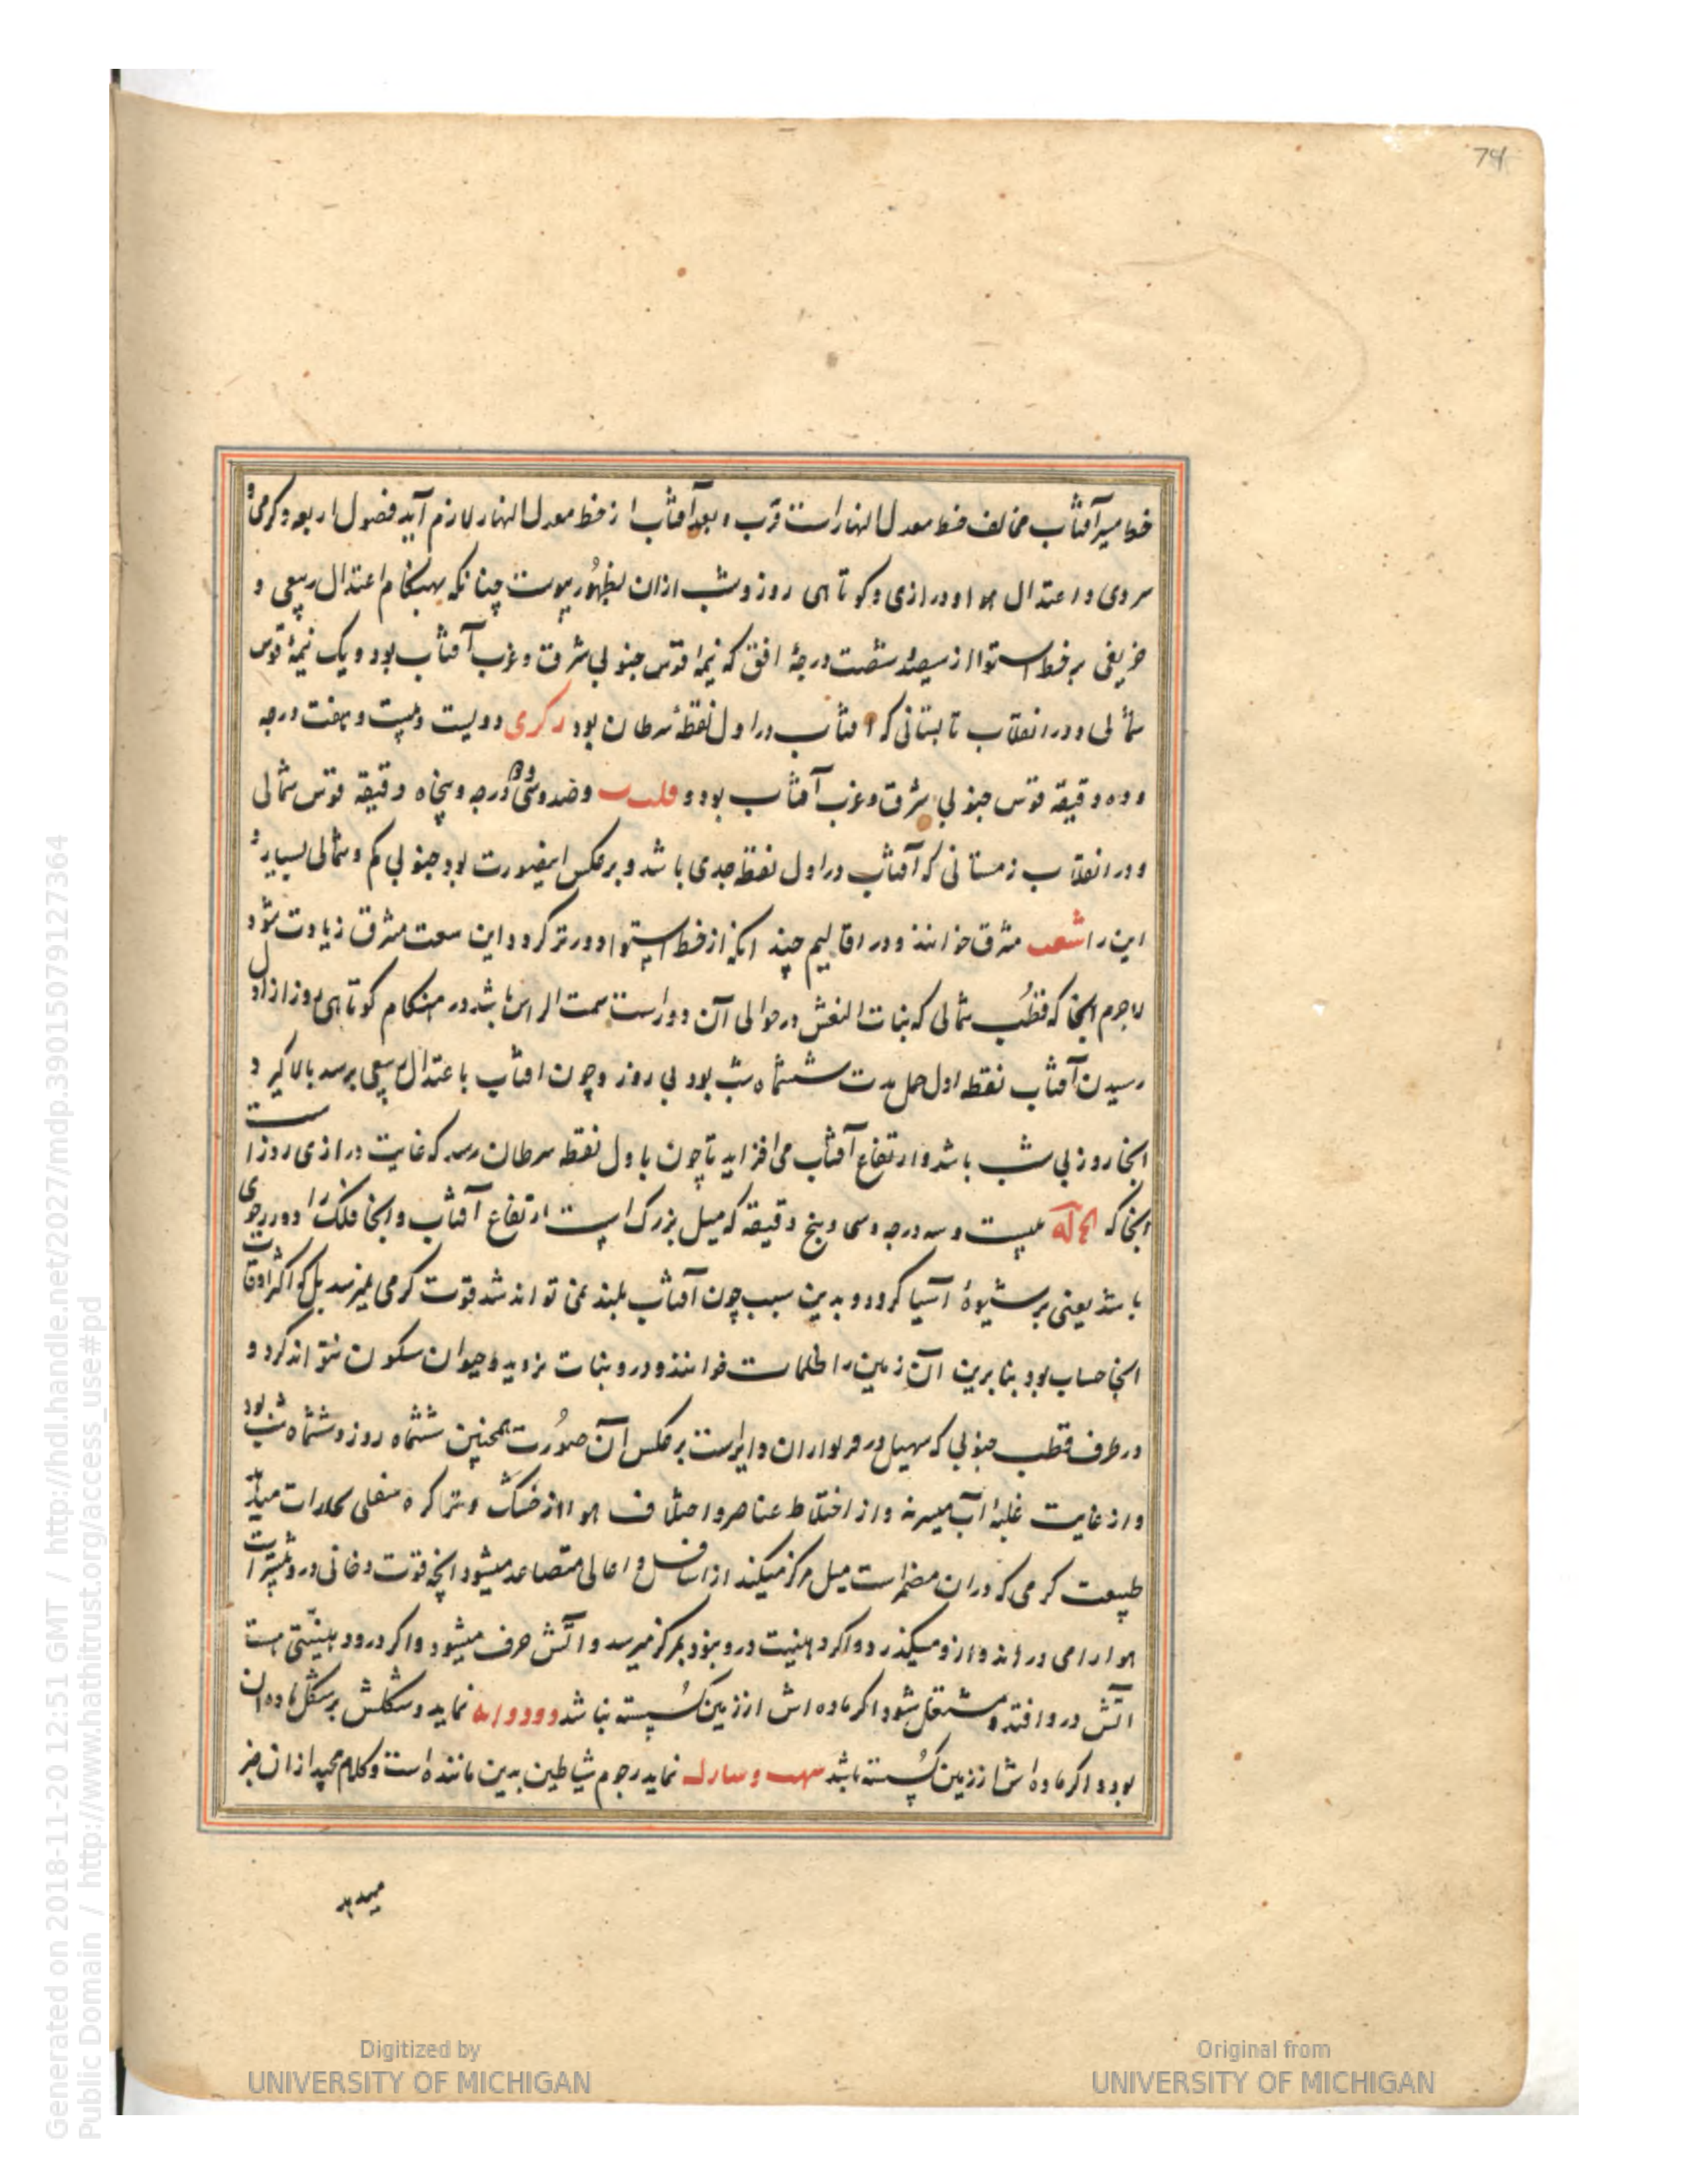 74
خط مسیر آفتاب مخالف خط معدل النهار است قرب و بعد آفتاب از خط معدل النهار لازم آید فصول اربعه و گرمی و
سردی و اعتدال هوا و درازی و کوتاهی روز و شب ازان بظهور پیوست چنانکه بهنگام اعتدال ربیعی و
خریفی بر خط استوا از سیصد و شصت درجهٔ افق که نیمهٔ قوس جنوبی شرق و غرب آفتاب بود و یک نیمهٔ قوس
شمالی و در انقلاب تابستانی که آفتاب در اول نقطهٔ سرطان بود دویست و بیست و هفت درجه
و ده دقیقه قوس جنوبی شرق و غرب آفتاب بود و وصد و سی و دو درجه و پنجاه دقیقه قوس شمالی
و در انقلاب زمستانی که آفتاب در اول نقطه جدی باشد و بر عکس اینصورت بود جنوبی کم و شمالی بسیار
این را مشرق خوانند و در اقالیم چند انکه از خط استوا دورتر گردد این سعت مشرق زیادت شود
لاجرم انجا که قطب شمالی که بنات النعش در حوالی آن دوار است سمت الراس باشد در هنگام کوتاهی روز از اول
رسیدن آفتاب نقطه اول حمل مدت ششماه شب بود بی روز و چون افتاب باعتدال ربیعی برسد بالا گیرد و
انجا روز بی شب باشد و ارتفاع آفتاب می افزاید تا چون باول نقطه سرطان رسد که غایت درازی روز است
انجا که بیست و سه درجه و سی و پنج دقیقه که میل بزرگ است ارتفاع آفتاب و انجا فلک را دور رحوی
باشد یعنی بر شیوهٔ آسیا گردد و بدین سبب چون آفتاب بلند نمی تواند شد قوت گرمی نمیرسد بل که اکثر اوقات
انجا بود بنابرین آن زمین را ظلمات خوانند و درو نبات نروید و حیوان سکون نتواند کرد و
در طرف قطب جنوبی که سهیل در دایراست بر عکس آن صورت همچنین ششماه روز و ششماه شب بود
و از غایت غلبهٔ آب و از اختلاط عناصر و اختلاف هوا از خشک و تر کره سفلی
طبیعت گرمی که دران مضمر است میل مرکز میکند از اسافل و اعالی متصاعد میشود انچه قوت دخانی درو بیشتر است
هوا را می دراند و ازو میگذرد و اگر درو نبود بمرکز میرسد و آتش صرف میشود و اگر درو هست
آتش درو افتد و مشتعل شود اگر ماده اش از زمین گسسته نباشد نماید و شکلش بر شکل ماده ان
بود و اگر ماده اش از زمین گسسته باشد نماید رجوم شیاطین بدین مانند است و کلام مجید ازان خبر
میدهد
Generated on 2018-11-20 12:51 GMT / http://hdl.handle.net/2027/mdp.39015079127364
Public Domain / http://www.hathitrust.org/access_use#pd
Digitized by
UNIVERSITY OF MICHIGAN
Original from
UNIVERSITY OF MICHIGAN